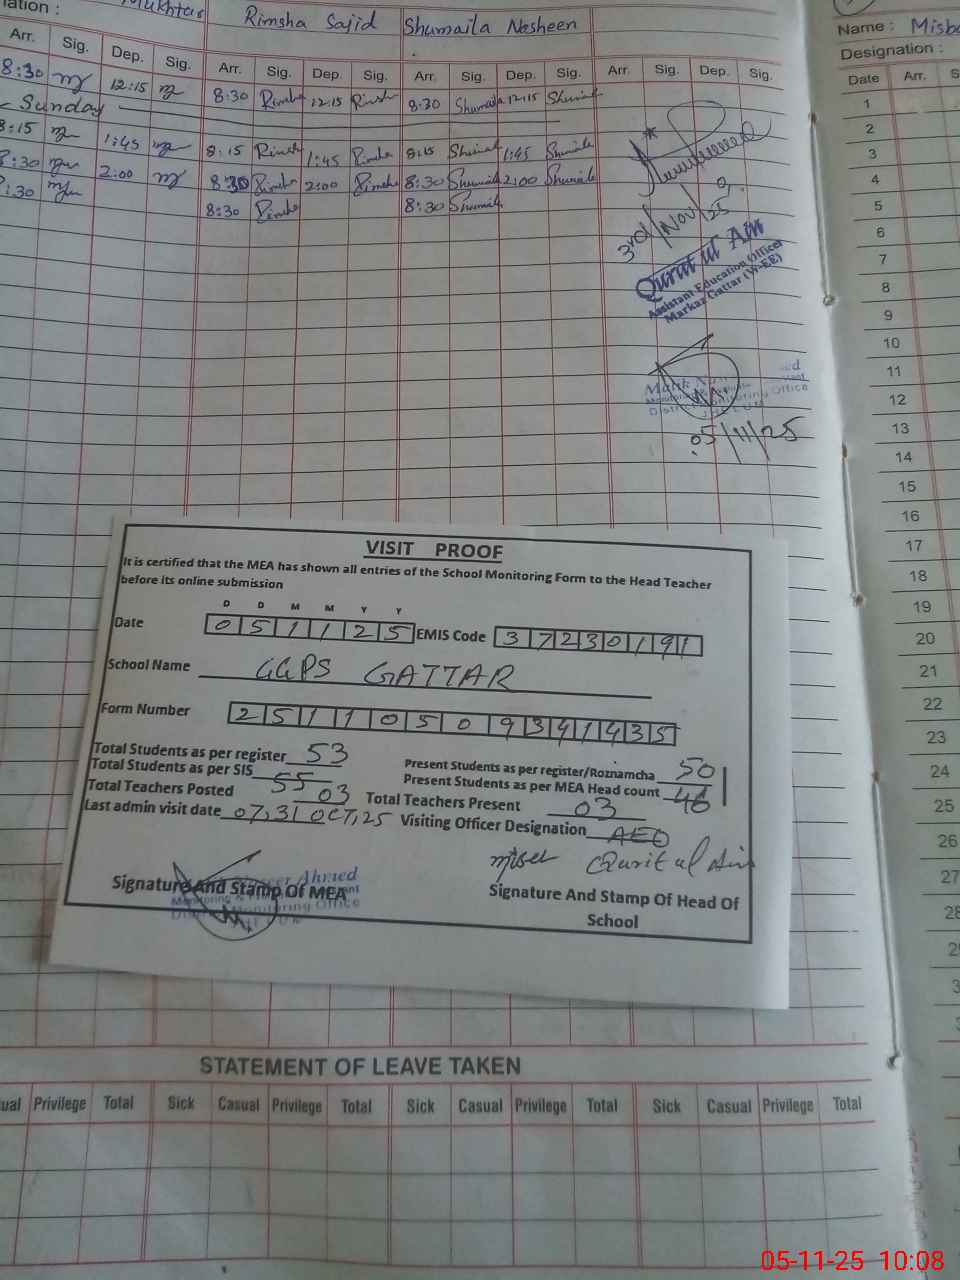 nation :
Mukhtar Rimsha Sajid Shumaila Nosheen
Arr. Sig. Dep. Sig. Arr. Sig. Dep. Sig. Arr. Sig. Dep. Sig. Arr. Sig. Dep. Sig.
8:30 12:15 8:30 Rimsha 12:15 Rimsha 8:30 Shumaila 12:15 Shumaila
Sunday
8:15 1:45 8:15 Rimsha 1:45 Rimsha 8:15 Shumaila 1:45 Shumaila
8:30 2:00 8:30 Rimsha 2:00 Rimsha 8:30 Shumaila 2:00 Shumaila
8:30 8:30 Rimsha 8:30 Shumaila
3rd/Nov/25
Qurat ul Ain
Assistant Education Officer
Markaz Gattar (W-EE)
Malik
District Monitoring Office
JHELUM
05/11/25
Name : Misb
Designation :
Date Arr. S
1
2
3
4
5
6
7
8
9
10
11
12
13
14
15
16
17
18
19
20
21
22
23
24
25
26
27
28
VISIT PROOF
It is certified that the MEA has shown all entries of the School Monitoring Form to the Head Teacher
before its online submission
D D M M Y Y
Date 051125 EMIS Code 37230191
School Name GGPS GATTAR
Form Number 25110509341435
Total Students as per register 53
Present Students as per register/Roznamcha 50
Total Students as per SIS 55
Present Students as per MEA Head count 46
Total Teachers Posted 03 Total Teachers Present 03
Last admin visit date 07,31 OCT,25 Visiting Officer Designation AEO
Qurit ul Ain
Signature And Stamp Of MEA
Ahmed
Monitoring Office
Signature And Stamp Of Head Of
School
STATEMENT OF LEAVE TAKEN
ual Privilege Total Sick Casual Privilege Total Sick Casual Privilege Total Sick Casual Privilege Total
05-11-25 10:08